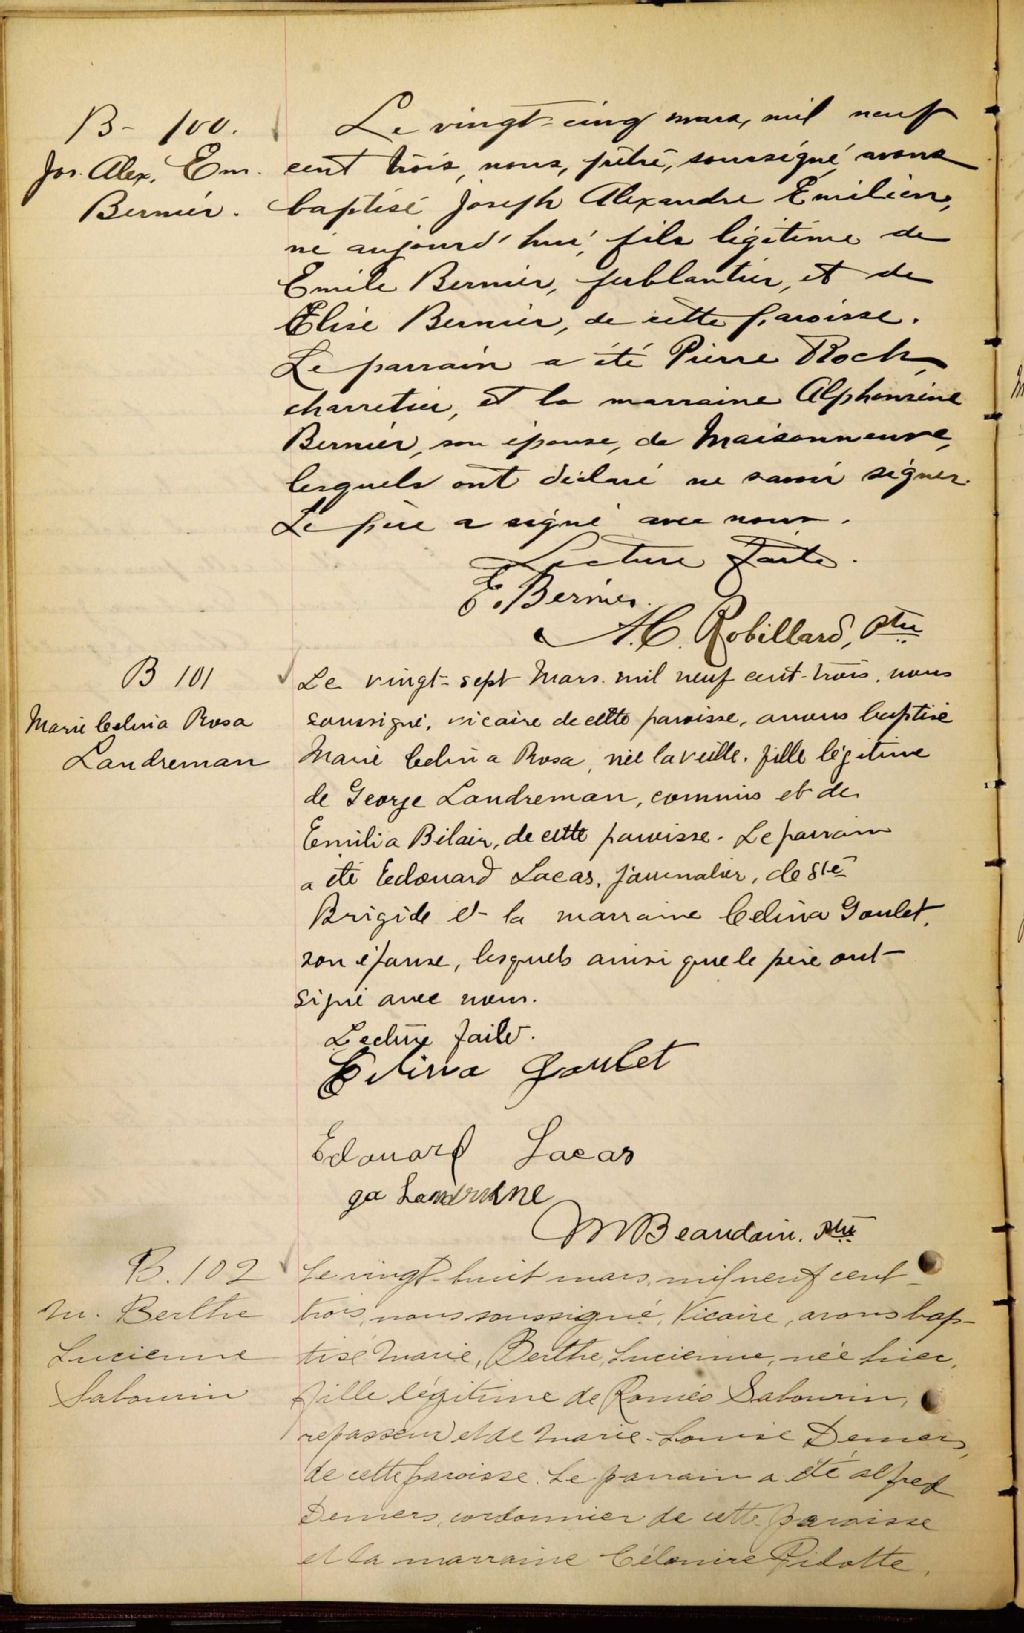 B - 100.
Jos. Alex. Em.
Bernier.
Le vingt-cinq mars, mil neuf
cent trois, nous, prêtre, soussigné, avons
baptisé Joseph Alexandre Emilien,
né aujourd'hui, fils légitime de
Emile Bernier, ferblantier, et de
Elise Bernier, de cette paroisse.
Le parrain a été Pierre Roch
charretier, et la marraine Alphonsine
Bernier, son épouse, de Maisonneuve,
lesquels ont déclaré ne savoir signer.
Le père a signé avec nous.
Lecture faite.
E. Bernier.
A. C. Robillard, Ptre
B 101
Marie Celina Rosa
Landreman
Le vingt-sept Mars mil neuf cent-trois, nous
soussigné, vicaire de cette paroisse, avons baptisé
Marie Celina Rosa, née la veille, fille légitime
de George Landreman, commis et de
Emilia Bélair, de cette paroisse. Le parrain
a été Edouard Lacas, journalier, de Ste
Brigide et la marraine Celina Goulet,
son épouse, lesquels ainsi que le père ont
signé avec nous.
Lecture faite.
Celina Goulet
Edouard Lacas
M Beaudoin. Ptre
B. 102
M. Berthe
Lucienne
Sabourin
Le vingt-huit mars, mil neuf cent-
trois, nous soussigné, Vicaire, avons bap-
tisé Marie, Berthe, Lucienne, née hier,
fille légitime de Roméo Sabourin,
repasseur et de Marie-Louise Demers,
de cette paroisse. Le parrain a été Alfred
Demers, cordonnier de cette paroisse
et la marraine Célanire Pilotte,